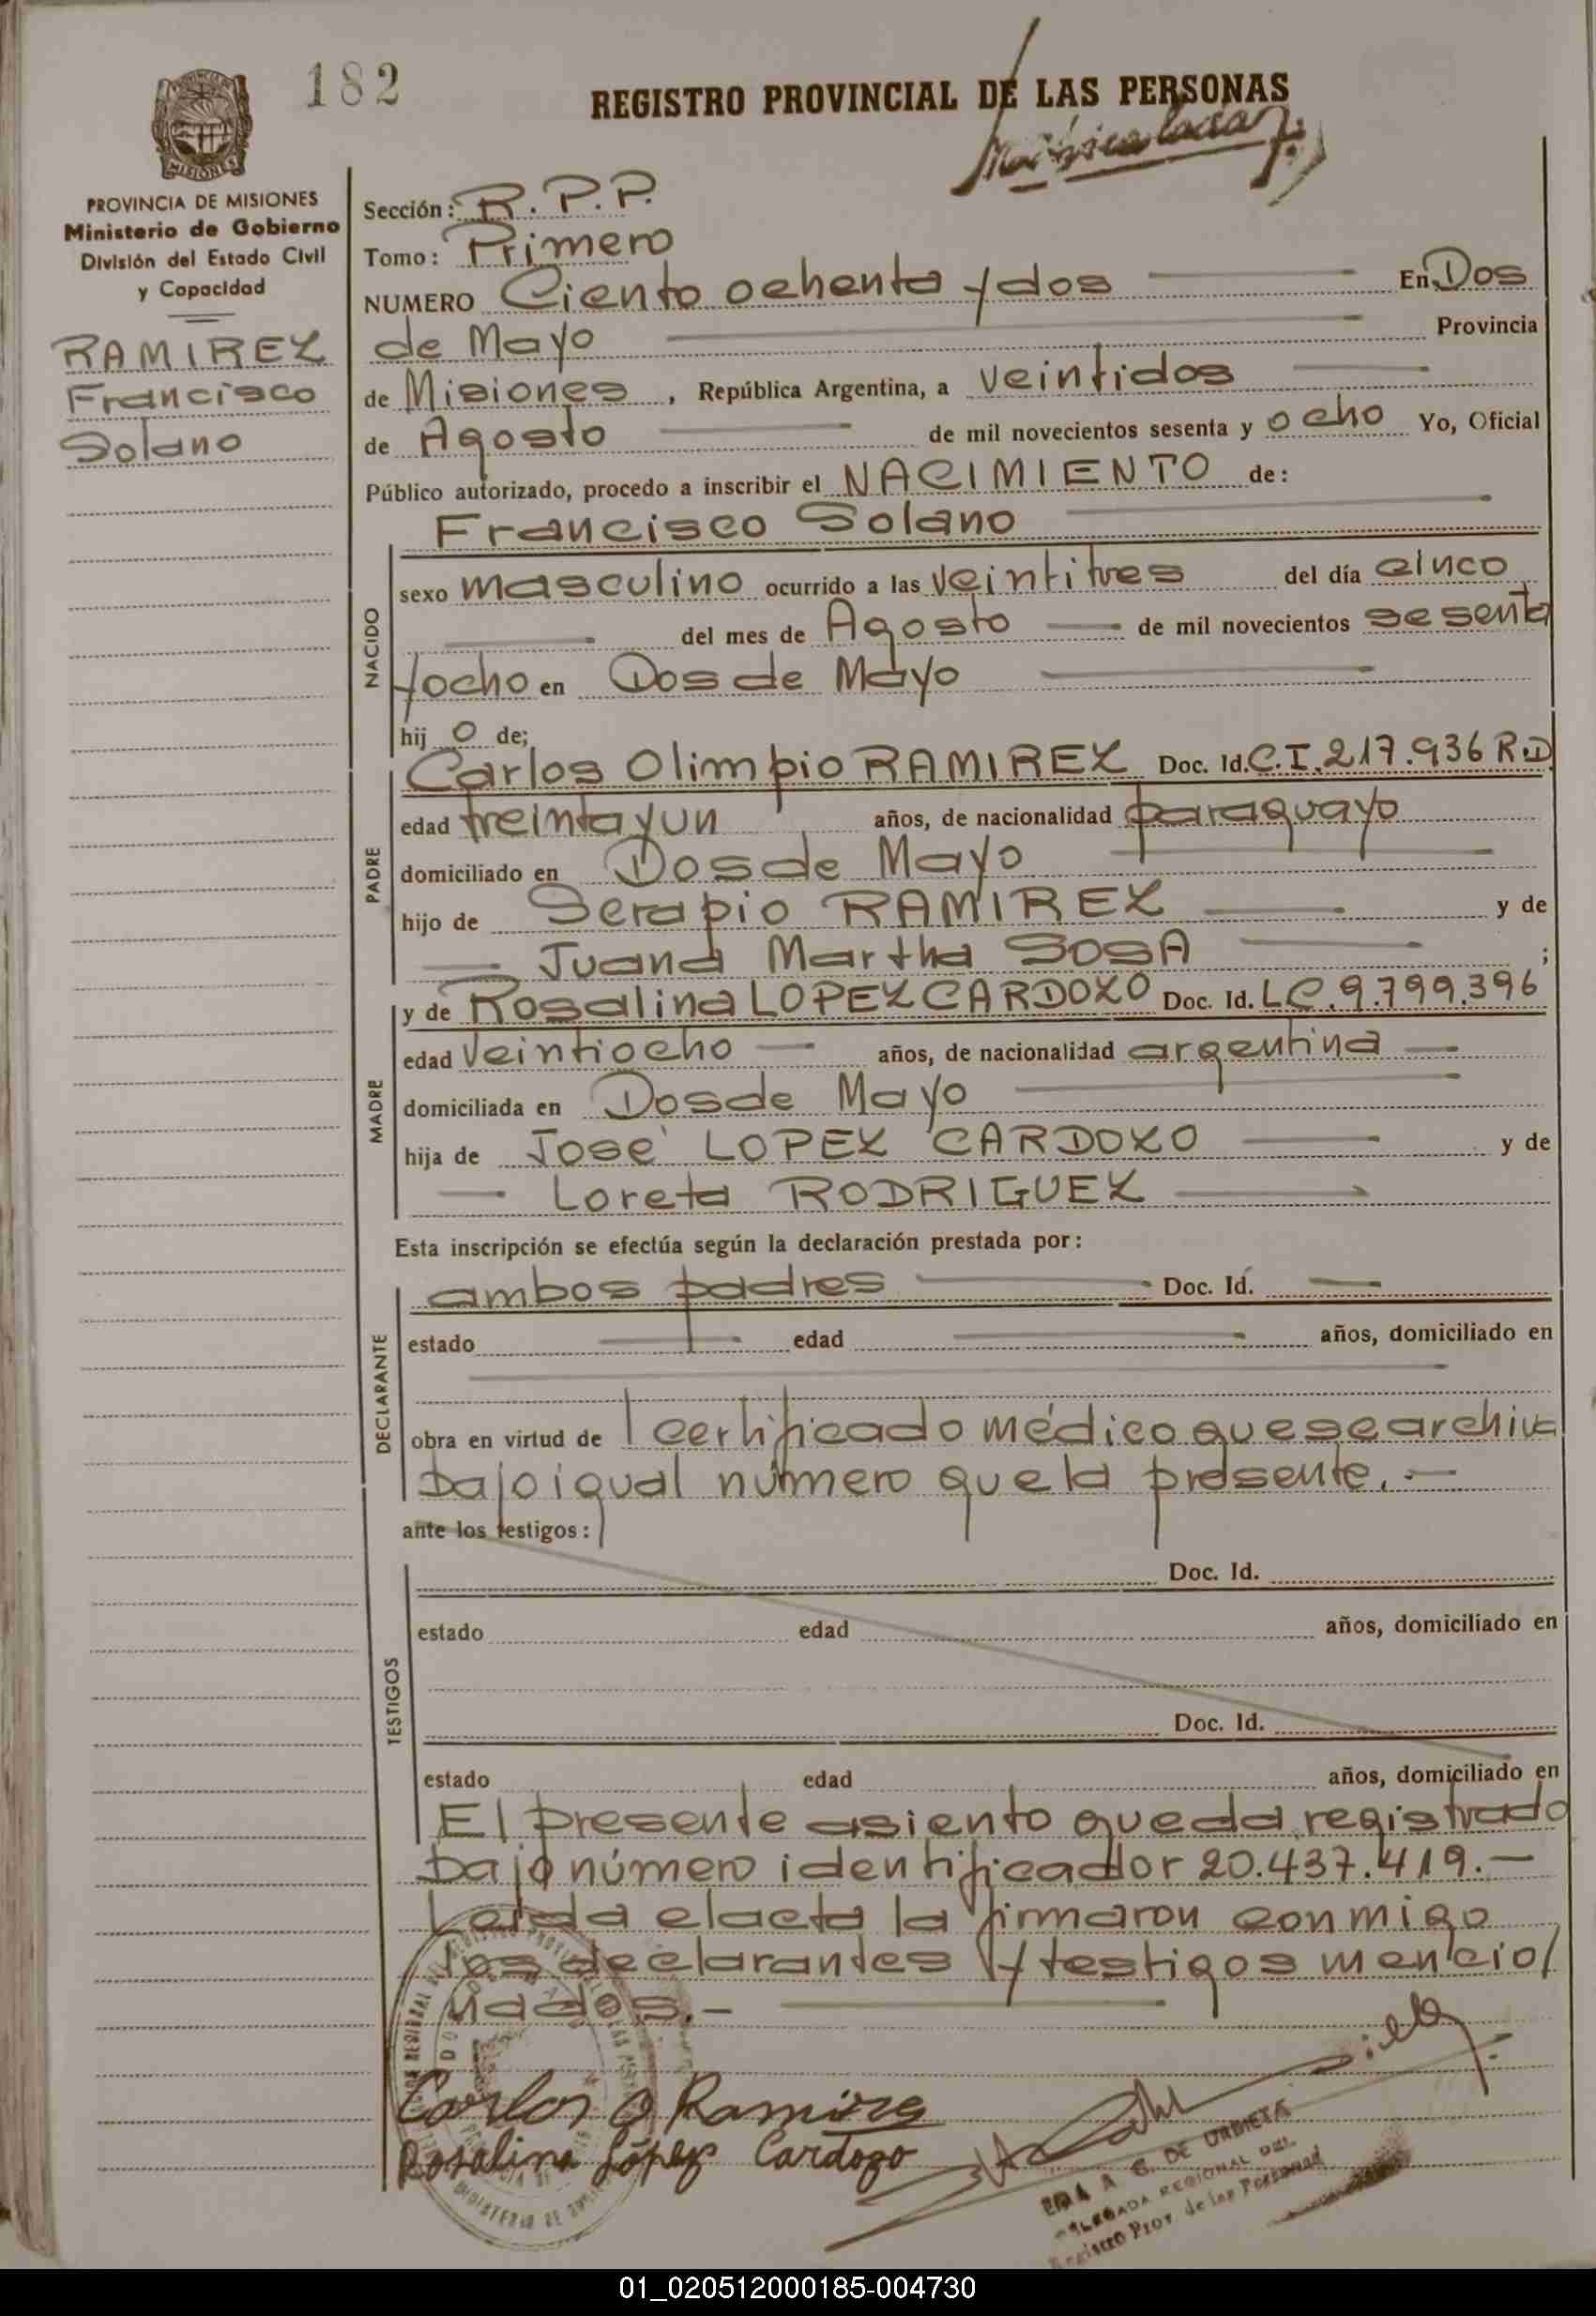 182
REGISTRO PROVINCIAL DE LAS PERSONAS
MISIONES
PROVINCIA DE MISIONES
Ministerio de Gobierno
División del Estado Civil
y Capacidad
RAMIREZ
Francisco
Solano
Sección: R. P. P.
Tomo: Primero
NUMERO Ciento ochenta y dos En Dos
de Mayo Provincia
de Misiones, República Argentina, a veintidos
de Agosto de mil novecientos sesenta y ocho Yo, Oficial
Público autorizado, procedo a inscribir el NACIMIENTO de:
Francisco Solano
NACIDO
sexo masculino ocurrido a las veintitres del día cinco
del mes de Agosto de mil novecientos sesenta
y ocho en Dos de Mayo
hij o de;
PADRE
Carlos Olimpio RAMIREZ Doc. Id. C.I. 217.936 R.D
edad treinta y un años, de nacionalidad paraguayo
domiciliado en Dos de Mayo
hijo de Serapio RAMIREZ y de
Juana Martha SOSA ;
MADRE
y de Rosalina LOPEZ CARDOZO Doc. Id. L.C. 9.799.396
edad veintiocho años, de nacionalidad argentina
domiciliada en Dos de Mayo
hija de José LOPEZ CARDOZO y de
Loreta RODRIGUEZ
Esta inscripción se efectúa según la declaración prestada por:
DECLARANTE
ambos padres Doc. Id.
estado edad años, domiciliado en
obra en virtud de 1 certificado médico que se archiva
bajo igual número que la presente.-
ante los testigos:
TESTIGOS
Doc. Id.
estado edad años, domiciliado en
Doc. Id.
estado edad años, domiciliado en
El presente asiento queda registrado
bajo número identificador 20.437.419.-
Leída el acta la firmaron conmigo
los declarantes y testigos mencio/
nados.-
Carlos O Ramirez
Rosalina López Cardozo
A G. DE URBIETA
DELEGADA REGIONAL DEL
Registro Prov. de las Personas
01_020512000185-004730